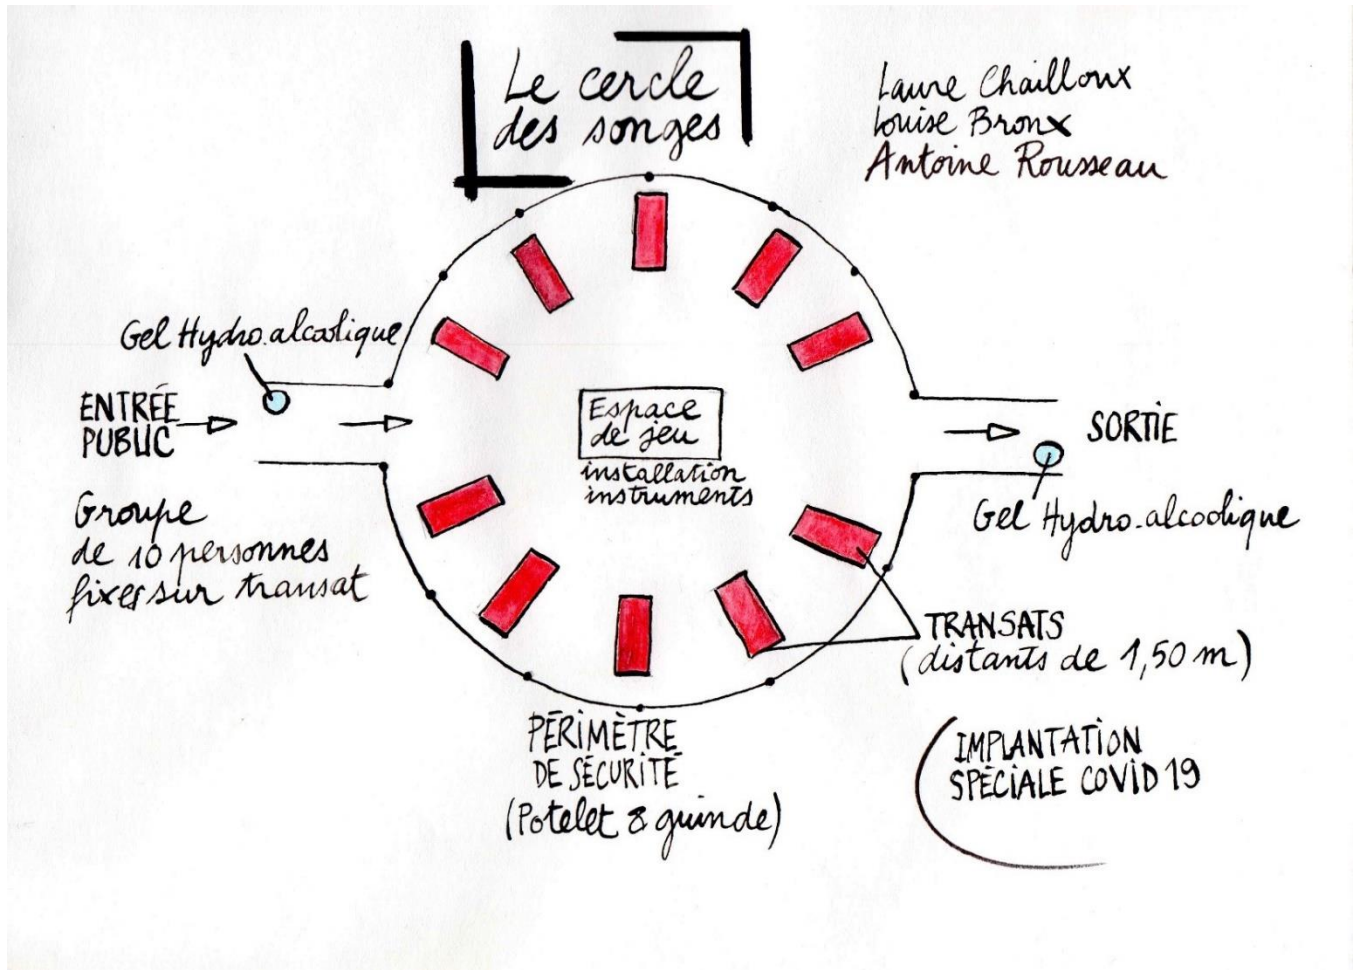 Le cercle
des songes
Laure Chailloux
Louise Bronx
Antoine Rousseau
Gel Hydro-alcoolique
ENTRÉE
PUBLIC
Groupe
de 10 personnes
fixes sur transat
Espace
de jeu
installation
instruments
SORTIE
Gel Hydro-alcoolique
TRANSATS
(distants de 1,50 m)
PÉRIMÈTRE
DE SÉCURITÉ
(Potelet & guinde)
IMPLANTATION
SPÉCIALE COVID 19